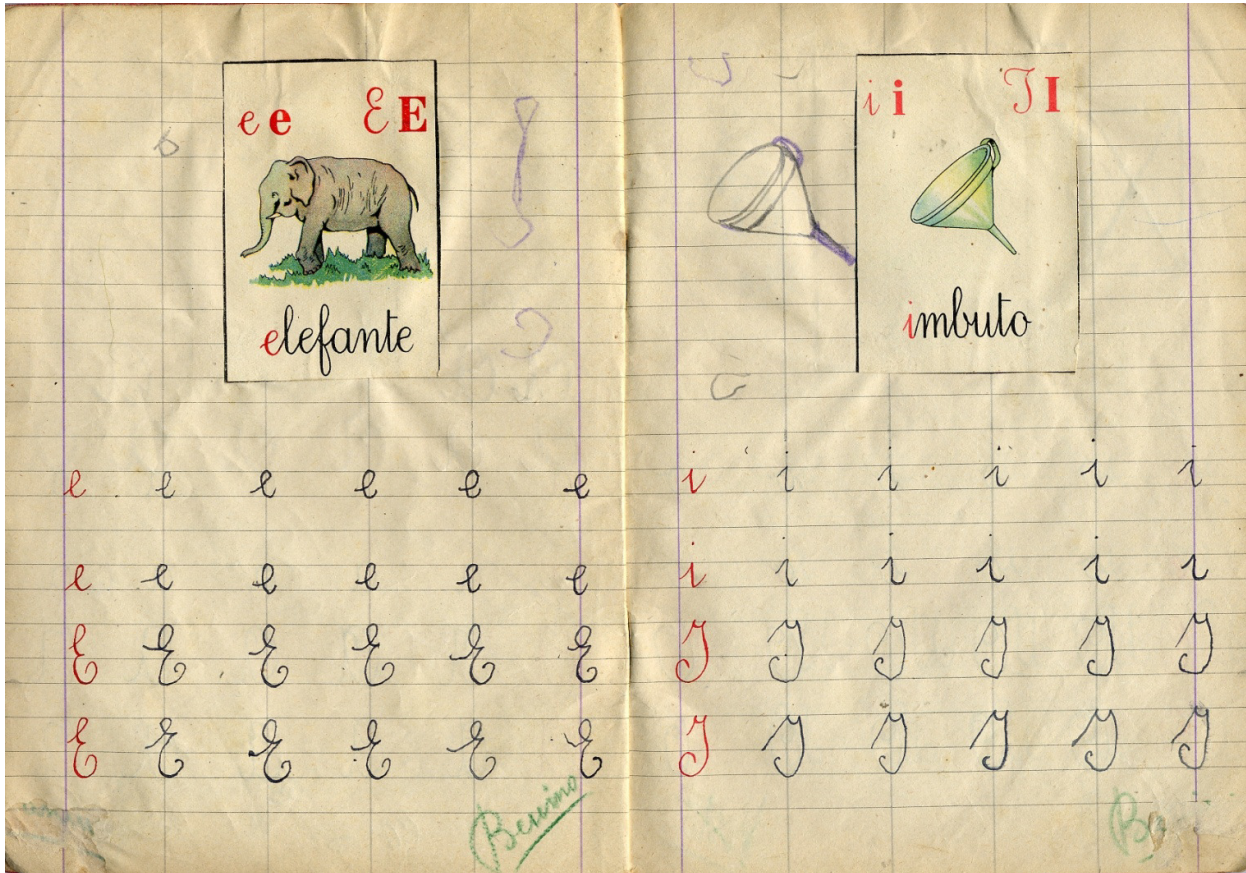 e e E E
elefante
e e e e e e
e e e e e e
E E E E E E
E E E E E E
Benino
i i I I
imbuto
i i i i i i
i i i i i i
I I I I I I
I I I I I I